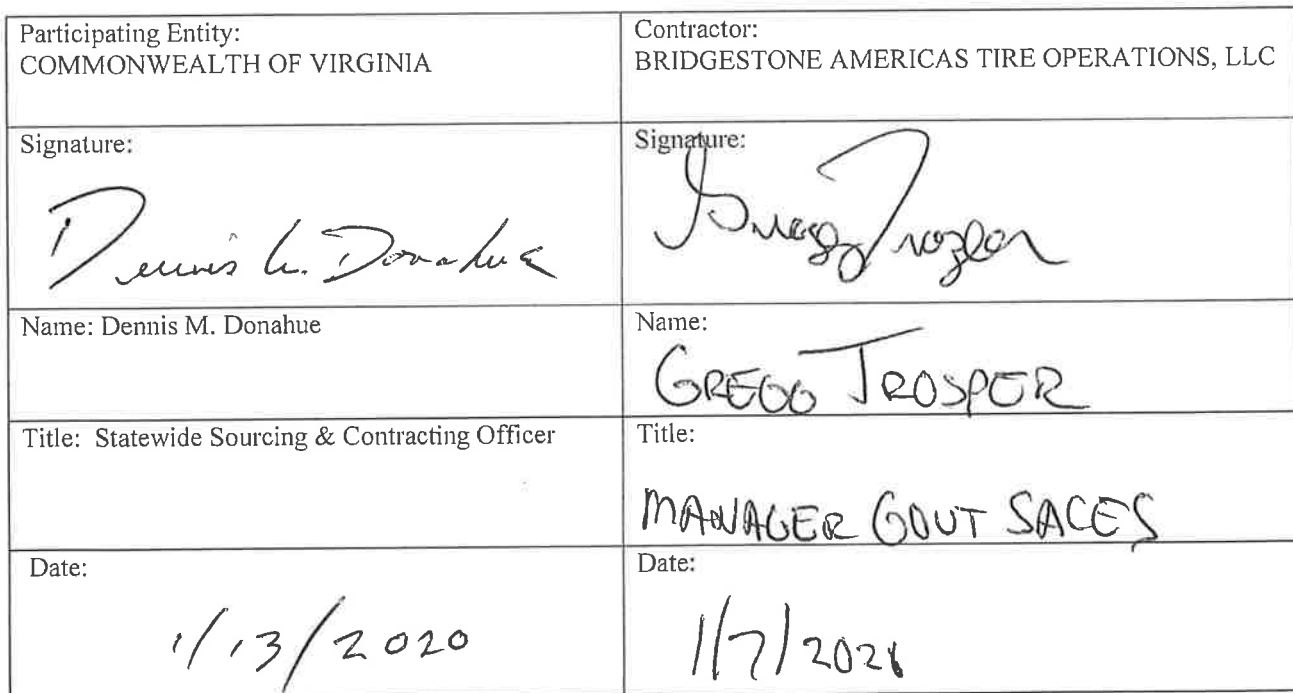 Participating Entity:
COMMONWEALTH OF VIRGINIA
Contractor:
BRIDGESTONE AMERICAS TIRE OPERATIONS, LLC
Signature:
Dennis M. Donahue
Signature:
Gregg Trosper
Name: Dennis M. Donahue
Name:
GREGG TROSPER
Title: Statewide Sourcing & Contracting Officer
Title:
MANAGER GOVT SALES
Date:
1/13/2020
Date:
1/7/2021